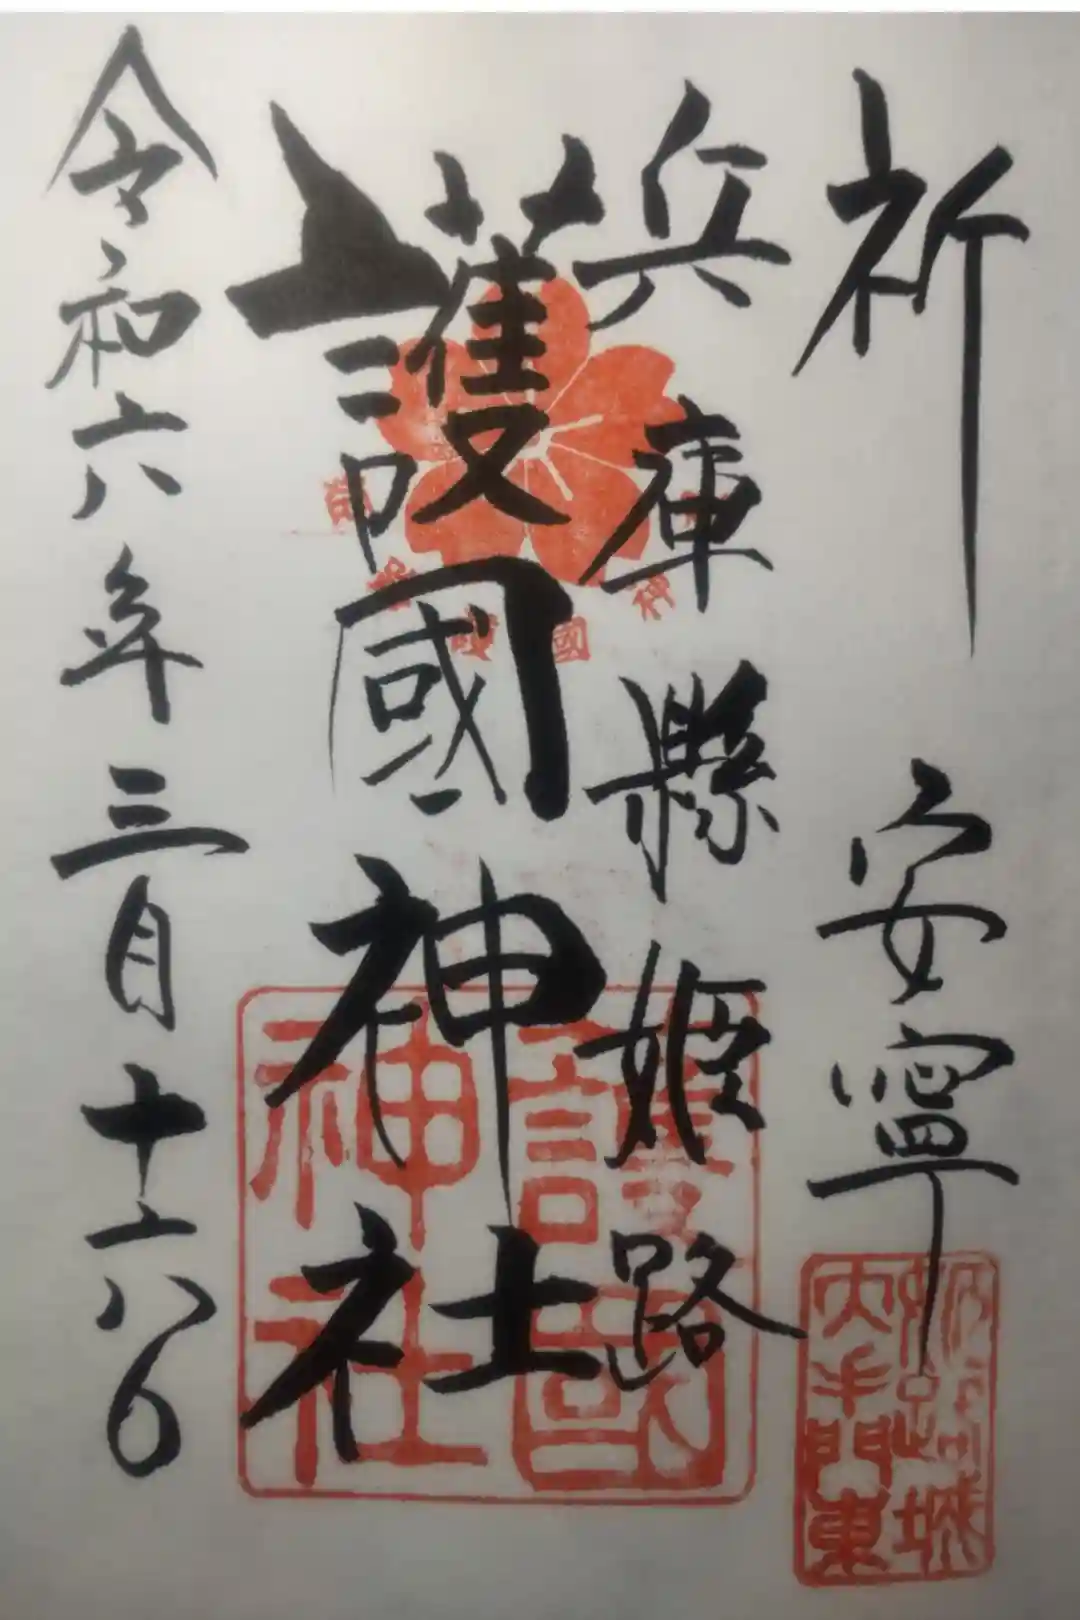 祈 安寧
兵庫縣姫路
護國神社
令和六年三月十六日
護國
神社
姫路城
大手門東
國
神